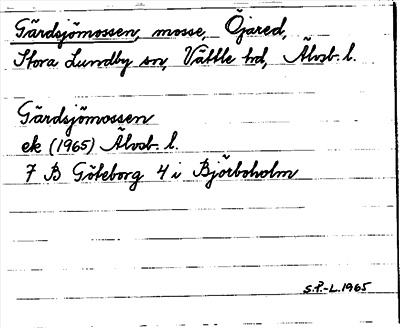 Gärdsjömossen, mosse, Öjared,
Stora Lundby sn, Vättle hd, Älvsb. l.
Gärdsjömossen
ek (1965) Älvsb. l.
7 B Göteborg 4 i Björboholm
S.P.-L. 1965